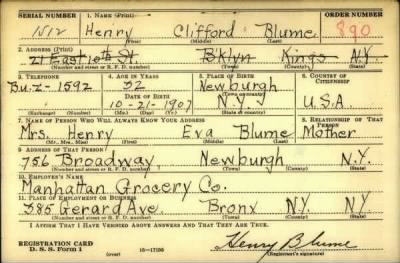 SERIAL NUMBER 1. NAME (Print) ORDER NUMBER
1512 Henry Clifford Blume 890
(First) (Middle) (Last)
2. ADDRESS (Print)
21 East 10th St. B'klyn Kings N.Y.
(Number and street or R. F. D. number) (Town) (County) (State)
3. TELEPHONE 4. AGE IN YEARS 5. PLACE OF BIRTH 6. COUNTRY OF CITIZENSHIP
Bu. 2-1592 32 Newburgh
DATE OF BIRTH (Town or county)
10-21-1907 N.Y. U.S.A.
(Exchange) (Number) (Mo.) (Day) (Yr.) (State or country)
7. NAME OF PERSON WHO WILL ALWAYS KNOW YOUR ADDRESS 8. RELATIONSHIP OF THAT PERSON
Mrs. Henry Eva Blume Mother
(Mr., Mrs., Miss) (First) (Middle) (Last)
9. ADDRESS OF THAT PERSON
756 Broadway, Newburgh N.Y.
(Number and street or R. F. D. number) (Town) (County) (State)
10. EMPLOYER'S NAME
Manhattan Grocery Co.
11. PLACE OF EMPLOYMENT OR BUSINESS
385 Gerard Ave. Bronx NY NY
(Number and street or R. F. D. number) (Town) (County) (State)
I AFFIRM THAT I HAVE VERIFIED ABOVE ANSWERS AND THAT THEY ARE TRUE.
REGISTRATION CARD
D. S. S. Form 1 (over) 16-17105 Henry Blume
(Registrant's signature)